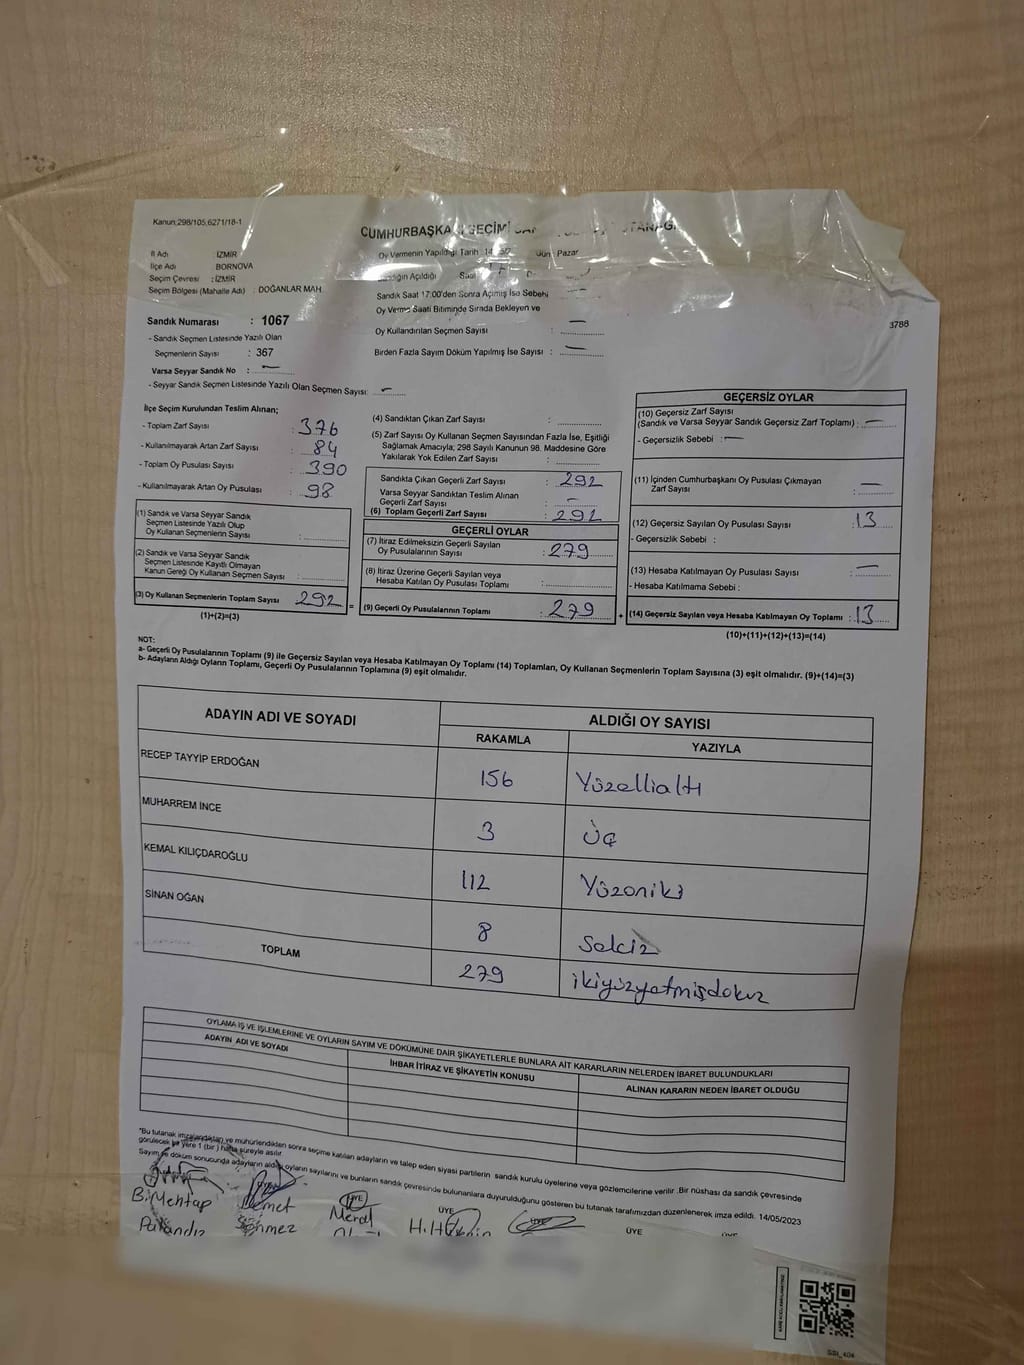 Kanun;298/105,6271/18-1
CUMHURBAŞKA SEÇİMİ
İl Adı İZMİR
İlçe Adı BORNOVA
Seçim Çevresi : İZMİR
Seçim Bölgesi (Mahalle Adı) : DOĞANLAR MAH
Oy Vermenin Yapıldığı Tarih Pazar
Açıldığı
Sandık Saat 17:00'den Sonra Açılmış İse Sebebi
Oy Verme Saati Bitiminde Sırada Bekleyen ve
Oy Kullandırılan Seçmen Sayısı :
Birden Fazla Sayım Döküm Yapılmış İse Sayısı :
3788
Sandık Numarası : 1067
- Sandık Seçmen Listesinde Yazılı Olan
Seçmenlerin Sayısı : 367
Varsa Seyyar Sandık No :
- Seyyar Sandık Seçmen Listesinde Yazılı Olan Seçmen Sayısı:
İlçe Seçim Kurulundan Teslim Alınan;
- Toplam Zarf Sayısı : 376
- Kullanılmayarak Artan Zarf Sayısı : 84
- Toplam Oy Pusulası Sayısı : 390
- Kullanılmayarak Artan Oy Pusulası : 98
(1) Sandık ve Varsa Seyyar Sandık
Seçmen Listesinde Yazılı Olup
Oy Kullanan Seçmenlerin Sayısı :
(2) Sandık ve Varsa Seyyar Sandık
Seçmen Listesinde Kayıtlı Olmayan
Kanun Gereği Oy Kullanan Seçmen Sayısı :
(3) Oy Kullanan Seçmenlerin Toplam Sayısı 292 =
(1)+(2)=(3)
(4) Sandıktan Çıkan Zarf Sayısı :
(5) Zarf Sayısı Oy Kullanan Seçmen Sayısından Fazla İse, Eşitliği
Sağlamak Amacıyla; 298 Sayılı Kanunun 98. Maddesine Göre
Yakılarak Yok Edilen Zarf Sayısı :
Sandıkta Çıkan Geçerli Zarf Sayısı : 292
Varsa Seyyar Sandıktan Teslim Alınan
Geçerli Zarf Sayısı :
(6) Toplam Geçerli Zarf Sayısı : 292
GEÇERLİ OYLAR
(7) İtiraz Edilmeksizin Geçerli Sayılan
Oy Pusulalarının Sayısı : 279
(8) İtiraz Üzerine Geçerli Sayılan veya
Hesaba Katılan Oy Pusulası Toplamı :
(9) Geçerli Oy Pusulalarının Toplamı : 279 +
GEÇERSİZ OYLAR
(10) Geçersiz Zarf Sayısı
(Sandık ve Varsa Seyyar Sandık Geçersiz Zarf Toplamı) :
- Geçersizlik Sebebi :
(11) İçinden Cumhurbaşkanı Oy Pusulası Çıkmayan
Zarf Sayısı :
(12) Geçersiz Sayılan Oy Pusulası Sayısı : 13
- Geçersizlik Sebebi :
(13) Hesaba Katılmayan Oy Pusulası Sayısı :
- Hesaba Katılmama Sebebi :
(14) Geçersiz Sayılan veya Hesaba Katılmayan Oy Toplamı : 13
(10)+(11)+(12)+(13)=(14)
NOT:
a- Geçerli Oy Pusulalarının Toplamı (9) ile Geçersiz Sayılan veya Hesaba Katılmayan Oy Toplamı (14) Toplamları, Oy Kullanan Seçmenlerin Toplam Sayısına (3) eşit olmalıdır. (9)+(14)=(3)
b- Adayların Aldığı Oyların Toplamı, Geçerli Oy Pusulalarının Toplamına (9) eşit olmalıdır.
ADAYIN ADI VE SOYADI ALDIĞI OY SAYISI
RAKAMLA YAZIYLA
RECEP TAYYİP ERDOĞAN 156 Yüzellialtı
MUHARREM İNCE 3 Üç
KEMAL KILIÇDAROĞLU 112 Yüzoniki
SİNAN OĞAN 8 Sekiz
TOPLAM 279 ikiyüzyetmişdokuz
OYLAMA İŞ VE İŞLEMLERİNE VE OYLARIN SAYIM VE DÖKÜMÜNE DAİR ŞİKAYETLERLE BUNLARA AİT KARARLARIN NELERDEN İBARET BULUNDUKLARI
ADAYIN ADI VE SOYADI İHBAR İTİRAZ VE ŞİKAYETİN KONUSU ALINAN KARARIN NEDEN İBARET OLDUĞU
"Bu tutanak imzalandıktan ve mühürlendikten sonra seçime katılan adayların ve talep eden siyasi partilerin sandık kurulu üyelerine veya gözlemcilerine verilir .Bir nüshası da sandık çevresinde
görülecek bir yere 1 (bir ) hafta süreyle asılır.
Sayım ve döküm sonucunda adayların aldığı oyların sayılarını ve bunların sandık çevresinde bulunanlara duyurulduğunu gösteren bu tutanak tarafımızdan düzenlenerek imza edildi. 14/05/2023
ÜYE ÜYE ÜYE ÜYE
B.Mehtap Meral